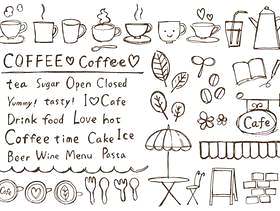 COFFEE♡Coffee♡
tea Sugar Open Closed
Yummy! tasty! I♡Cafe
Drink food Love hot
Coffee time Cake Ice
Beer Wine Menu Pasta
Cafe
Cafe